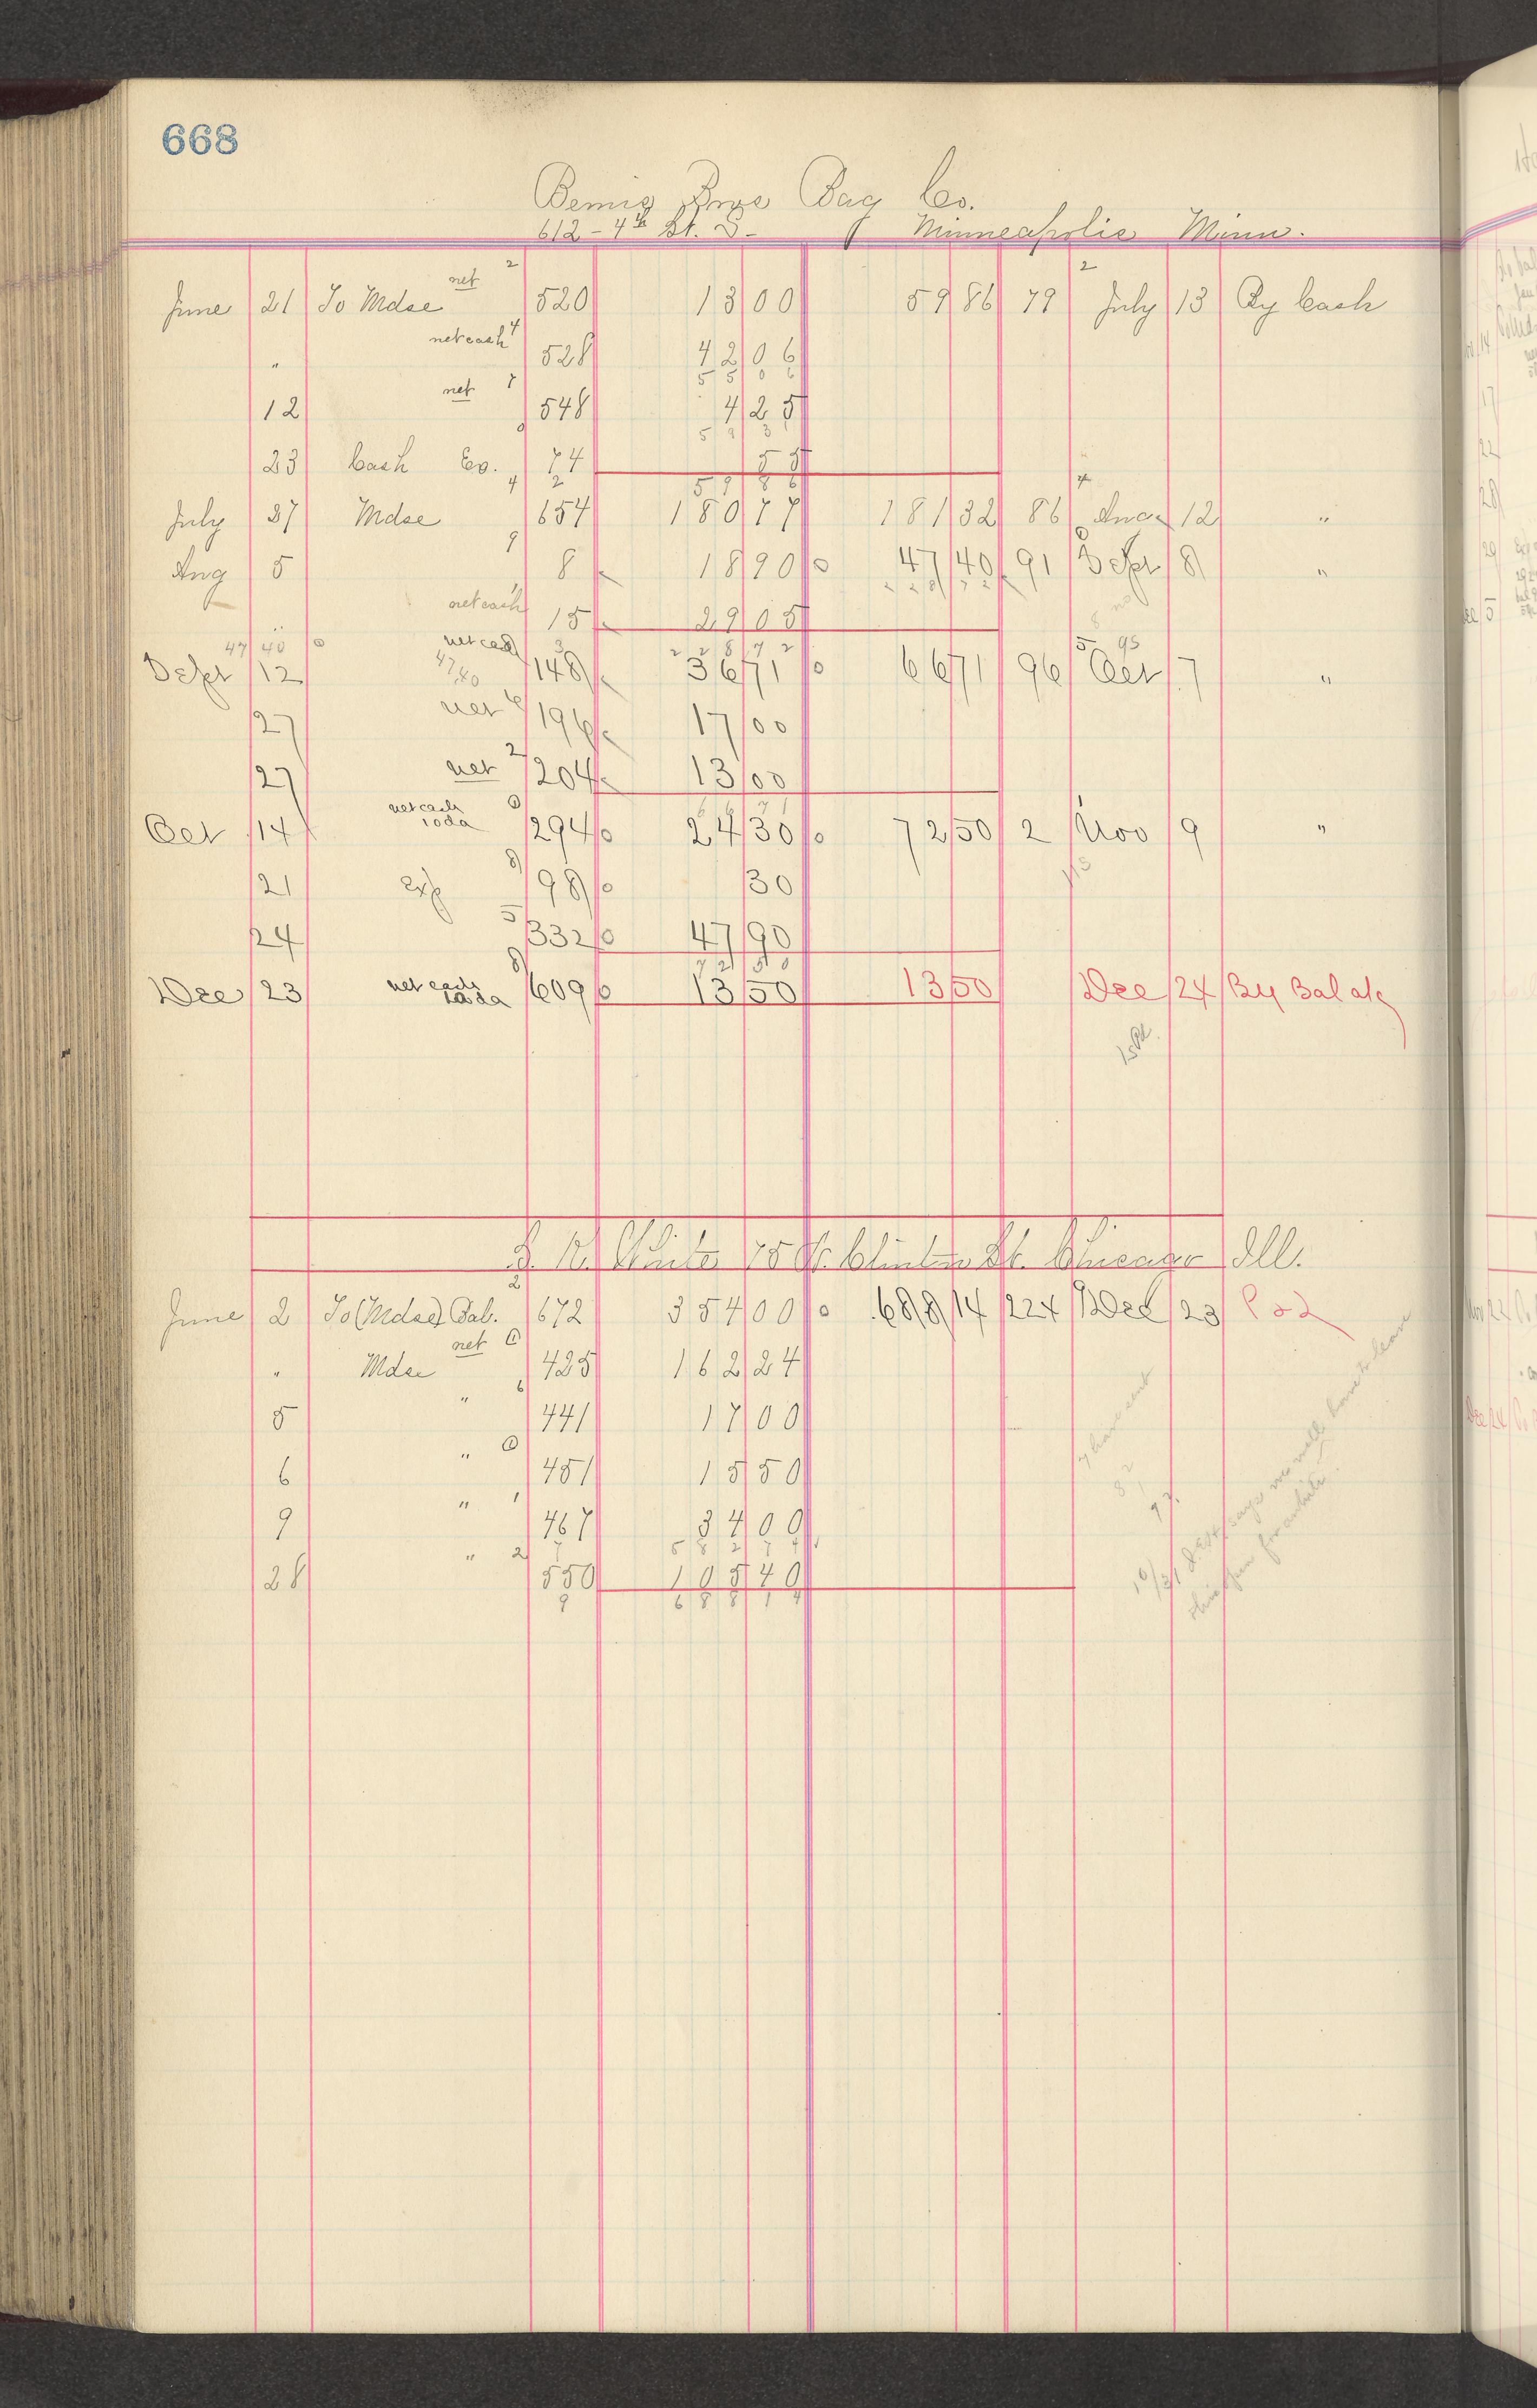 668
Bemis Bros Bag Co.
612-4th St. S- Minneapolis Minn.
2 2
net
June 21 To Mdse 520 13 00 59 86 79 July 13 By Cash
net cash 4
" 528 42 06
55 06
net 7
12 548 4 25
59 3
23 Cash Co. 74 55
59 86
July 27 Mdse 654 180 77 181 32 86 Aug 12 "
Aug 5 8 18 90 47 40 91 Sept 8 "
net cash 15 29 05
47 40 net cash 228 72 5 95
Sept 12 148 36 71 66 71 96 Oct 7 "
47 40
27 net 6 196 17 00
27 net 2 204 13 00
66 71
net cash
Oct 14 10 da 294 24 30 72 50 2 Nov 9 "
21 Exp 98 30
24 5 332 47 90
72 50
Dec 23 net cash 10 da 609 13 50 13 50 Dec 24 By Bal

White 75 Clinton St. Chicago Ill.
2
June 2 To (Mdse) Bal. 672 354 00 688 14 224 Dec 23 P & L
net
" Mdse 425 162 24
5 " 441 17 00
6 " 451 15 50
9 " 467 34 00
582 74
28 " 2 550 105 40
688 14